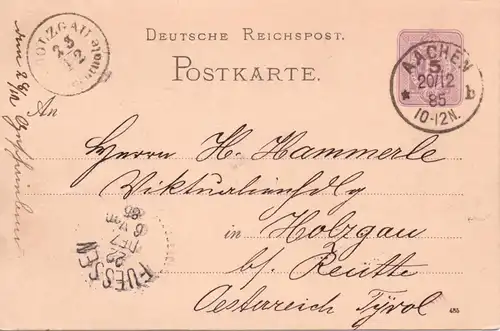 DEUTSCHE REICHSPOST.
POSTKARTE.
HOLZGAU
23
12
AACHEN
5
20/12
85
10-12N.
* b
An
Herrn H. Hammerle
Viktualienhdlg
in Holzgau
bf. Reutte
Oesterreich Tyrol
FUESSEN
22
DEZ
6 Vor
85
485